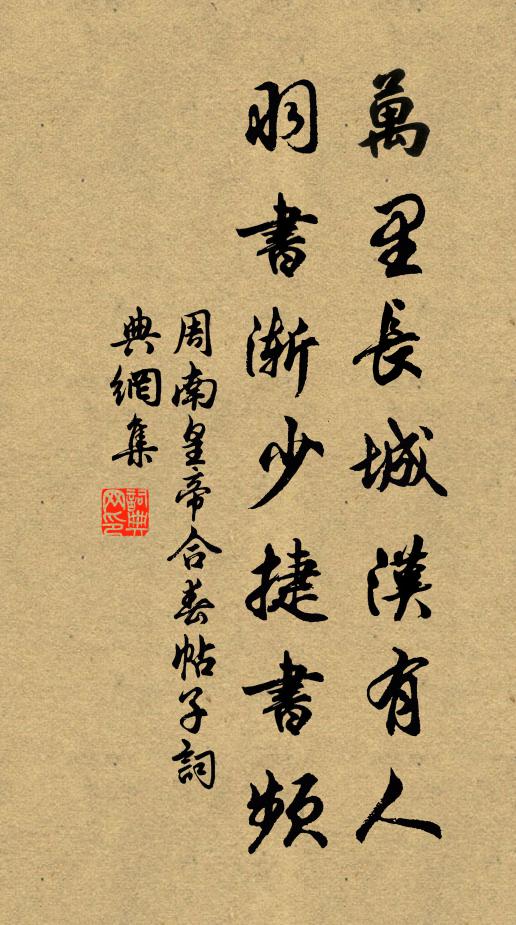 萬里長城漢有人
羽書漸少捷書頻
周南皇帝合春帖子詞
典網集
詞典网印